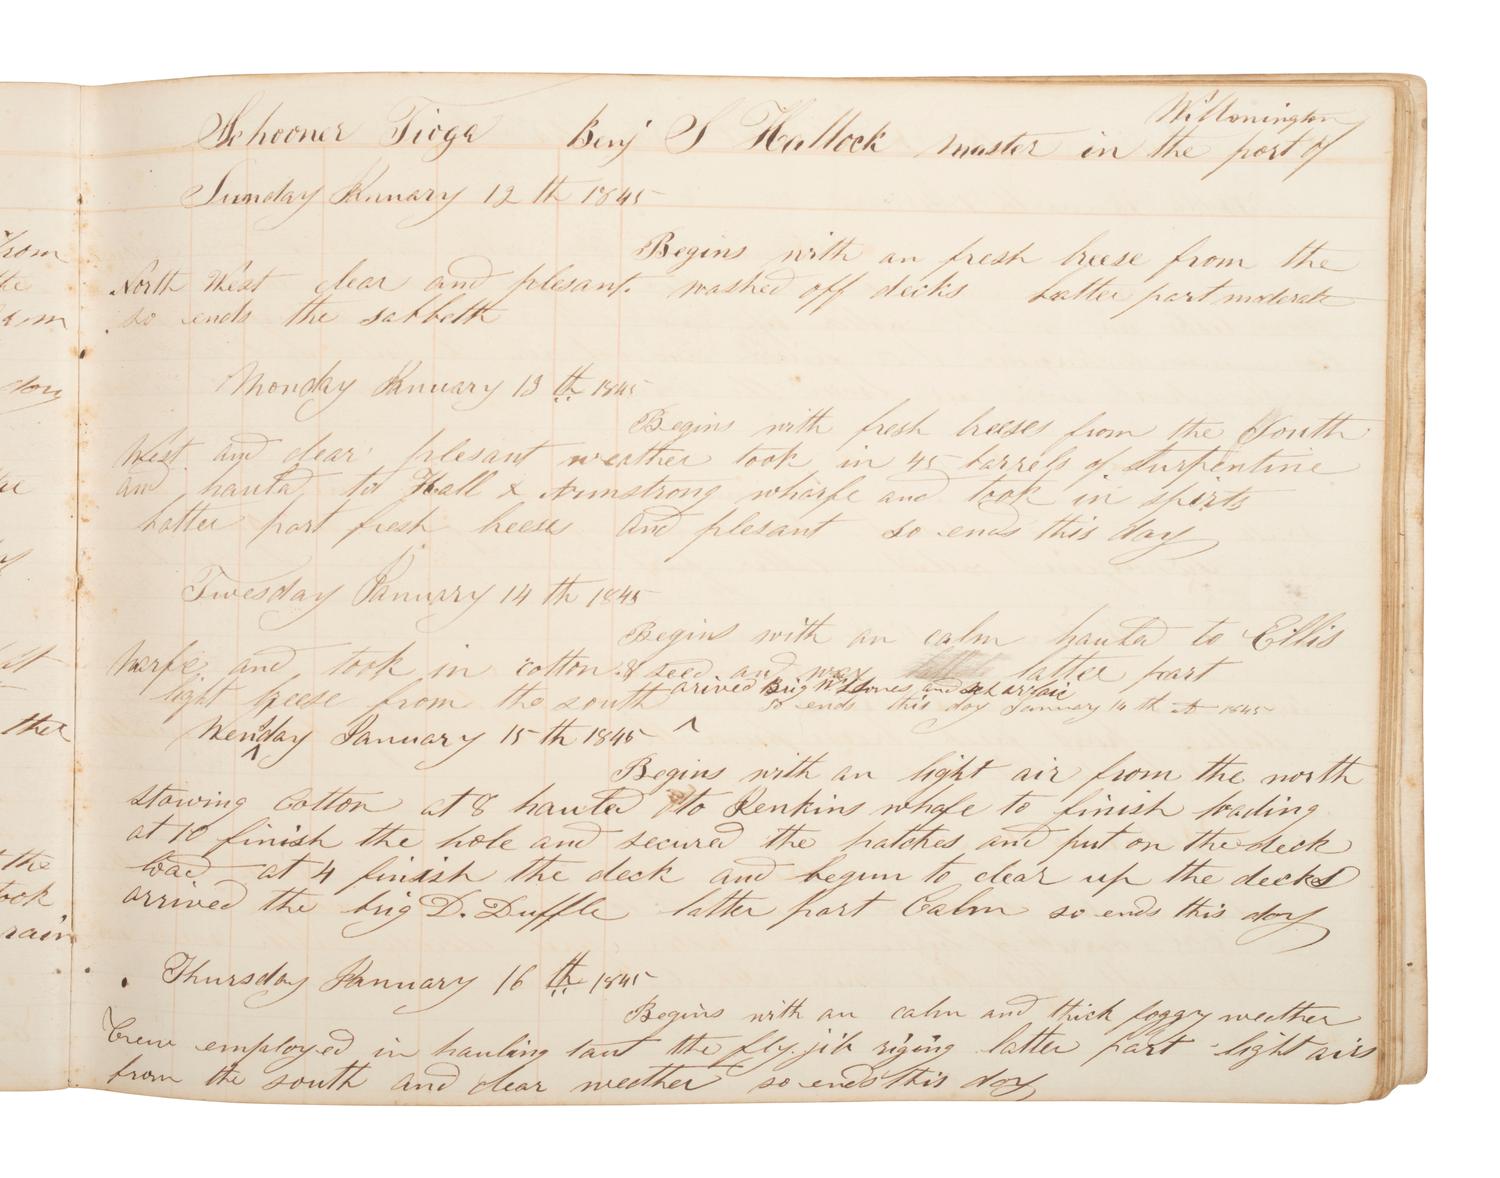 Schooner Tioga Benj S Hallock master in the port of Willmington
Sunday January 12 th 1845
Begins with an fresh breese from the
North West clear and plesant. washed off decks Latter part moderate
so ends the sabbeth
Monday January 13 th 1845
Begins with fresh breeses from the South
West and clear plesant weather took in 45 barrels of turpentine
and hauld to Hall & Armstrong wharfe and took in spirts
Latter part fresh breese and plesant so ends this day
Tuesday January 14 th 1845
Begins with an calm hauld to Ellis
wharfe and took in cotton & seed and wax latter part
light breese from the south arived Brig Wm L Jones and sch
so ends this day January 14 th 1845
Wenday January 15 th 1845
Begins with an light air from the north
stowing Cotton at 8 hauld to Jenkins whafe to finish loading
at 10 finish the hole and secured the hatches and put on the deck
load at 4 finish the deck and begun to clear up the decks
arrived the brig D. Duffle latter part Calm so ends this day
Thursday January 16 th 1845
Begins with an calm and thick foggy weether
Crew employed in hauling taut the fly. jib riging latter part light airs
from the south and clear weether so ends this day
from
the
the
took
rain